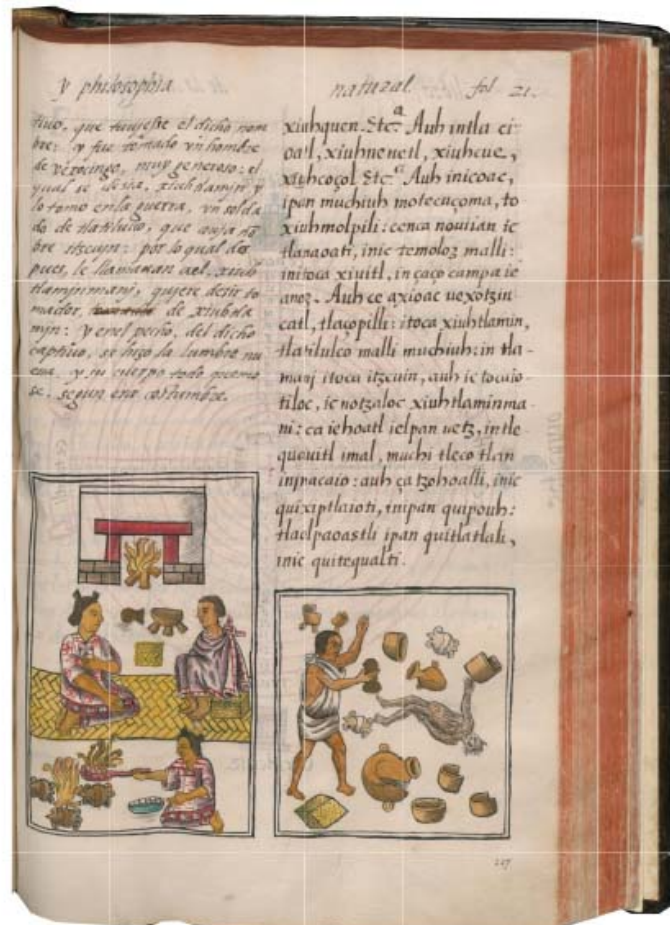 y philosophia
natural fol 21.
tiuo, que tuujesse el dicho nom
bre: y fue tomado vn hombre
de vexocingo, muy generoso: el
qual se dezia, xiuhtlamjn y
lo tomo en la guerra, vn solda
do de tlatilulco, que auja nõ
bre itzcuin: por lo qual des
pues, le llamauan ael. xiuh
tlamjnmanj, qujere dezir to
mador, de xiuhtla
mjn: y en el pecho, del dicho
captiuo, se hizo la lumbre nu
eua, y su cuerpo todo quemo
se, segun era costumbre.
xiuhquen. Etc.a Auh intla ci
oatl, xiuhnenetl, xiuhcue,
xiuhcoçol Etc.a Auh inicoac,
ipan muchiuh motecuçoma, to
xiuhmolpili: cenca nouiian ic
tlanaoati, inic temoloz malli:
initoca xiuitl, in çaço campa ie
anoz. Auh ce axioac uexotzin
catl, tlaçopilli: itoca xiuhtlamin,
tlatilulco malli muchiuh: in tla-
manj itoca itzcuin, auh ic tocaio
tiloc, ic notzaloc xiuhtlaminma
ni: ca iehoatl ielpan uetz, in tle
quauitl imal, muchi tleco tlan
injnacaio: auh ça tzohoalli, inic
quixiptlaioti, inipan quipouh:
tlaolpaoastli ipan quitlatlali,
inic quitequalti.
217